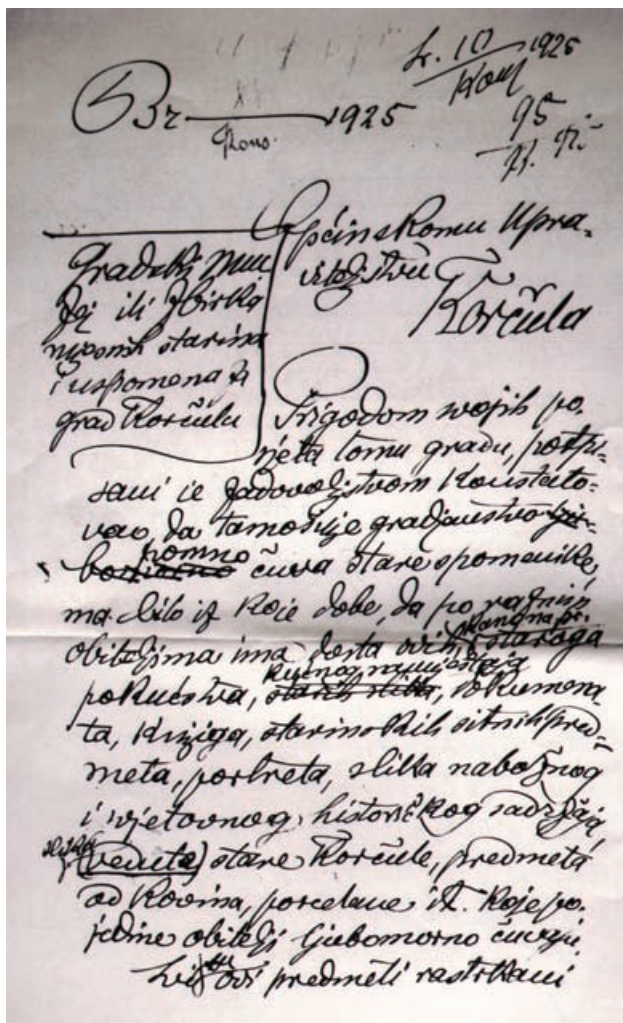 Br 1925
Kons.
br. 10 1925
Kons
95
Općinskomu Upra-
viteljstvu
Korčula
Gradski Mu
zej ili Zbirka
starina
i uspomena za
grad Korčulu
Prigodom svojih po-
sjeta tomu gradu, potpi-
sani je zadovoljstvom konstato-
vao da tamošnje gradjanstvo
pomno
čuva stare spomenike
ma bilo iz koje dobe, da po raznim
obiteljima ima dosta ovih staroga
kućnog namještaja
pokućstva, starih slika, dokumena
ta, knjiga, starinskih sitnih pred-
meta, portreta, slika nabožnog
i svjetovnog historičkog sadržaja,
slika
(veduta) stare Korčule, predmeta
od kovina, porcelane it. koje po-
jedine obitelji ljubomorno čuvaju.
ovi predmeti rastrkani